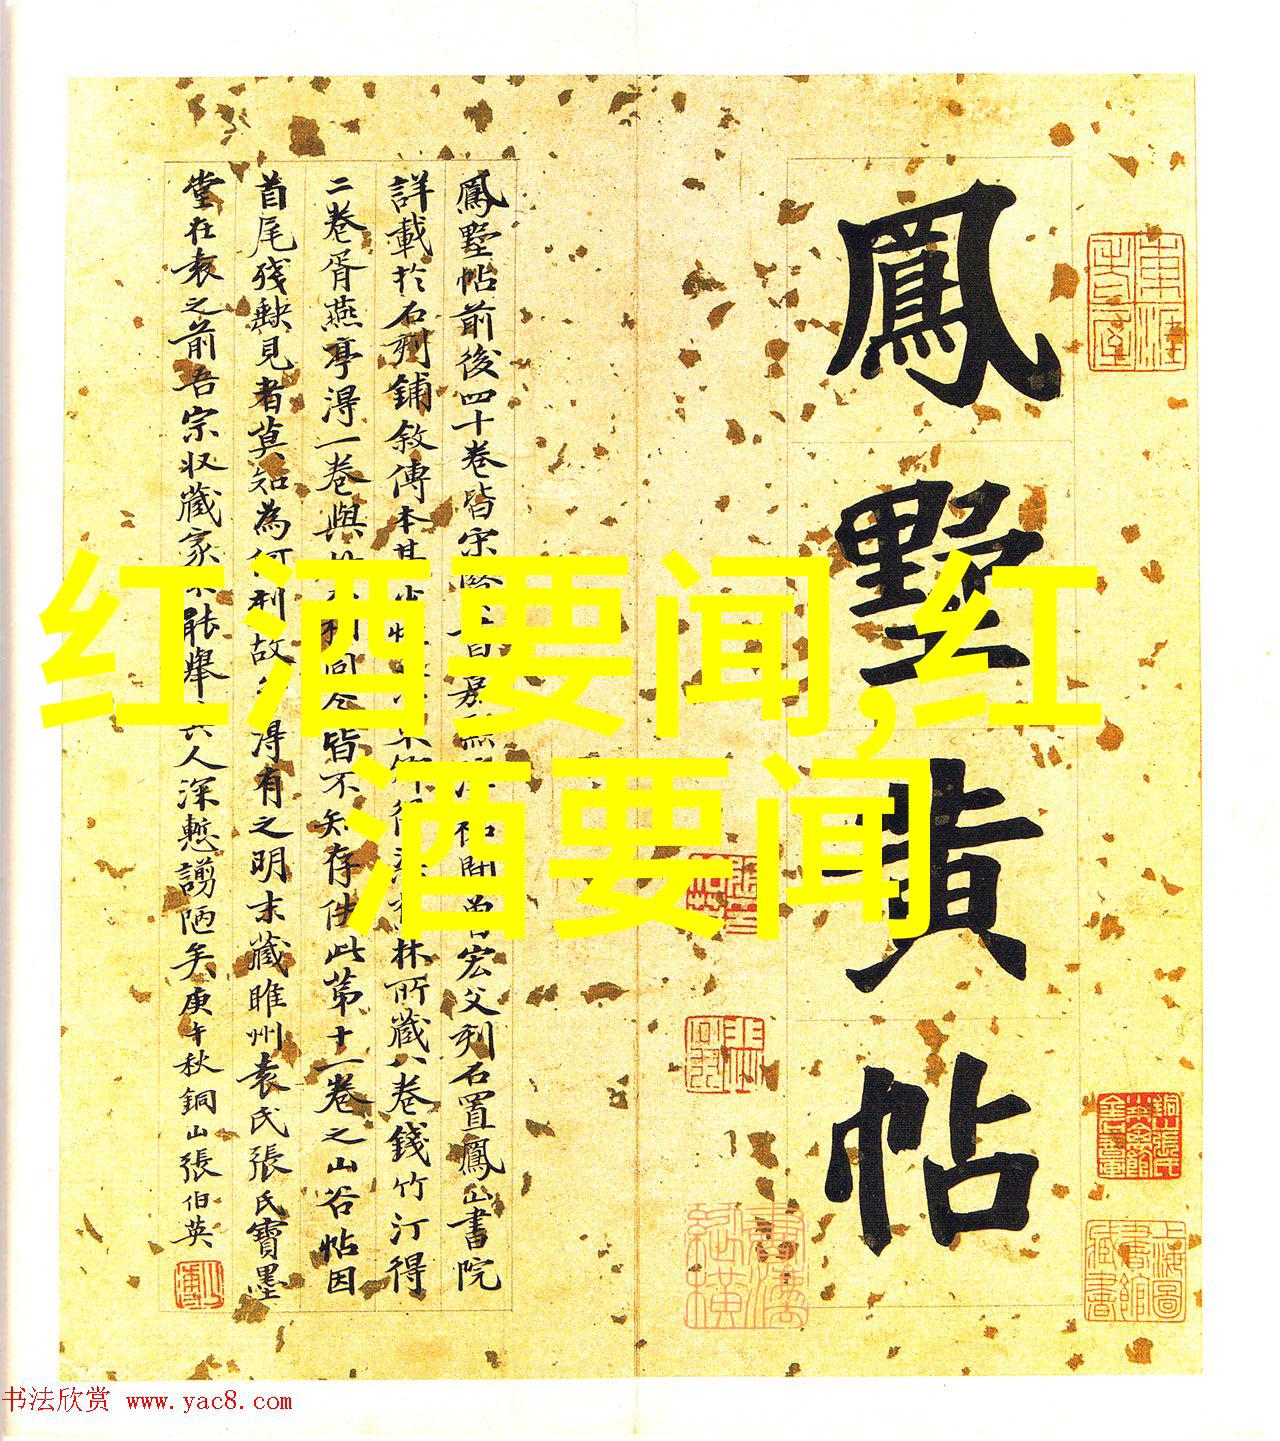 鳳墅黄帖
鳳墅帖前後四十卷皆宋
宏父刻石置鳳山書院
詳載於石刻鋪敘傳本甚
林所藏八卷錢竹汀得
二卷胥燕亭得一卷與
同今皆不知存佚此第十一卷之山谷帖因
首尾殘缺見者莫知為何刻故
得有之明末藏睢州袁氏張氏寶墨
堂在袁之前吾宗収藏家
能舉
人深慙謭陋矣庚午秋銅山張伯英
红酒要闻,红
酒要闻
上海圖書館藏書
书法欣赏 www.yac8.com